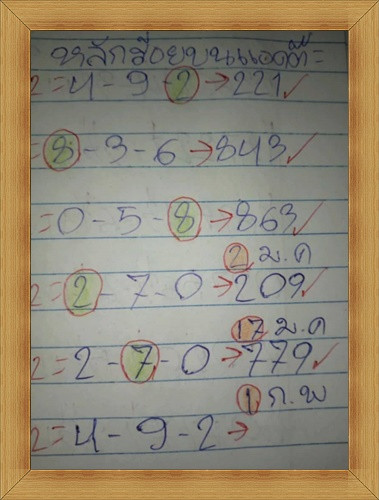 หลักร้อยบนแอดตี๋=
2=4-9-2→221✓
=8-3-6→843✓
=0-5-8→863✓
2 ม.ค
2=2-7-0→209✓
17 ม.ค
2=2-7-0→779✓
1 ก.พ
2=4-9-2→